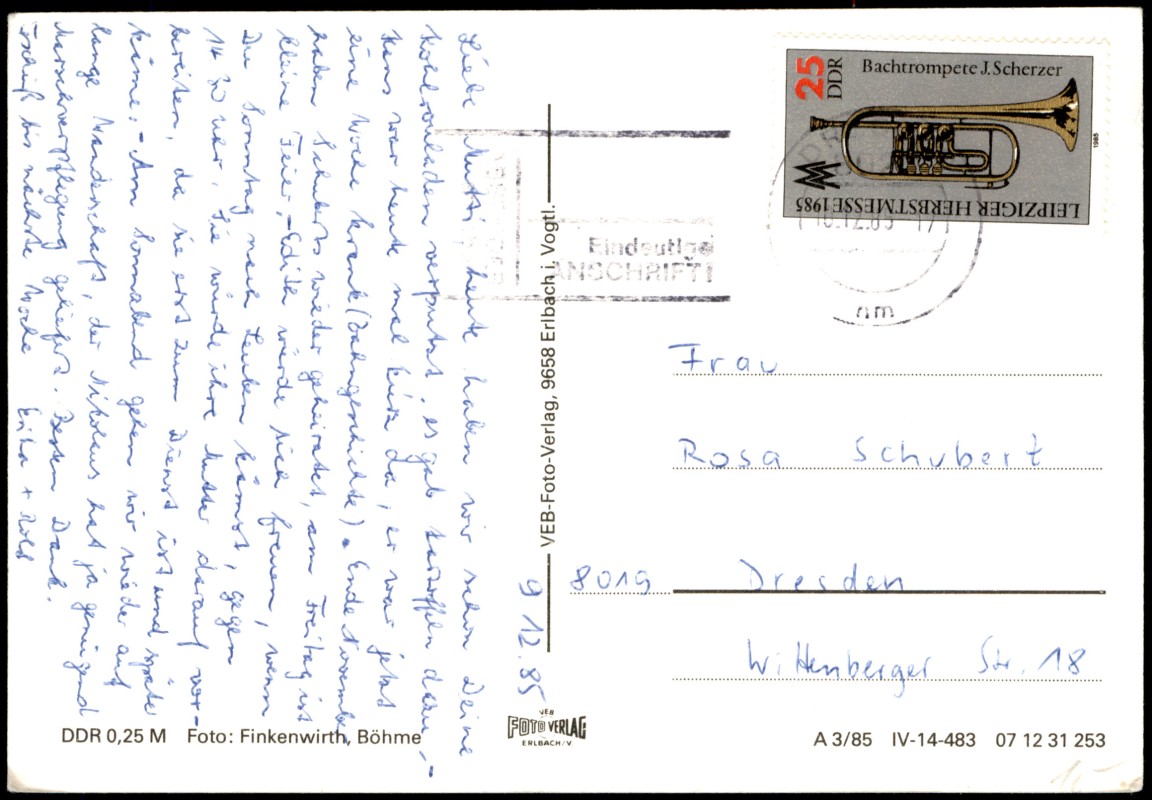 Liebe Mutti, heute haben wir schon Deine
Kohlrouladen verputzt. es gab Kartoffeln dazu,-
Hans war heute mal kurz da, er war jetzt
eine Woche krank (Zahngeschichte). Ende November
haben Schuberts wieder geheiratet, am Freitag ist
kleine Feier,- Edith würde sich freuen, wenn
Du Sonntag nach Leuben kämst, gegen
14 30 Uhr. Sie würde ihre Mutter darauf vor-
bereiten, da sie erst zum Dienst ist und später
käme.- Am Sonnabend gehen wir wieder auf
lange Wanderschaft, der Nikolaus hat ja genügend
Marschverpflegung geliefert. Besten Dank.
Tschüß bis nächste Woche + Rolf
9 12.85
25
DDR
Bachtrompete J. Scherzer
1985
LEIPZIGER HERBSTMESSE 1985
Eindeutige
ANSCHRIFT!
nm
Frau
Rosa Schubert
8019 Dresden
Wittenberger Str. 18
VEB-Foto-Verlag, 9658 Erlbach i. Vogtl.
VEB
FOTO VERLAG
ERLBACH/V
DDR 0,25 M Foto: Finkenwirth, Böhme
A 3/85 IV-14-483 07 12 31 253